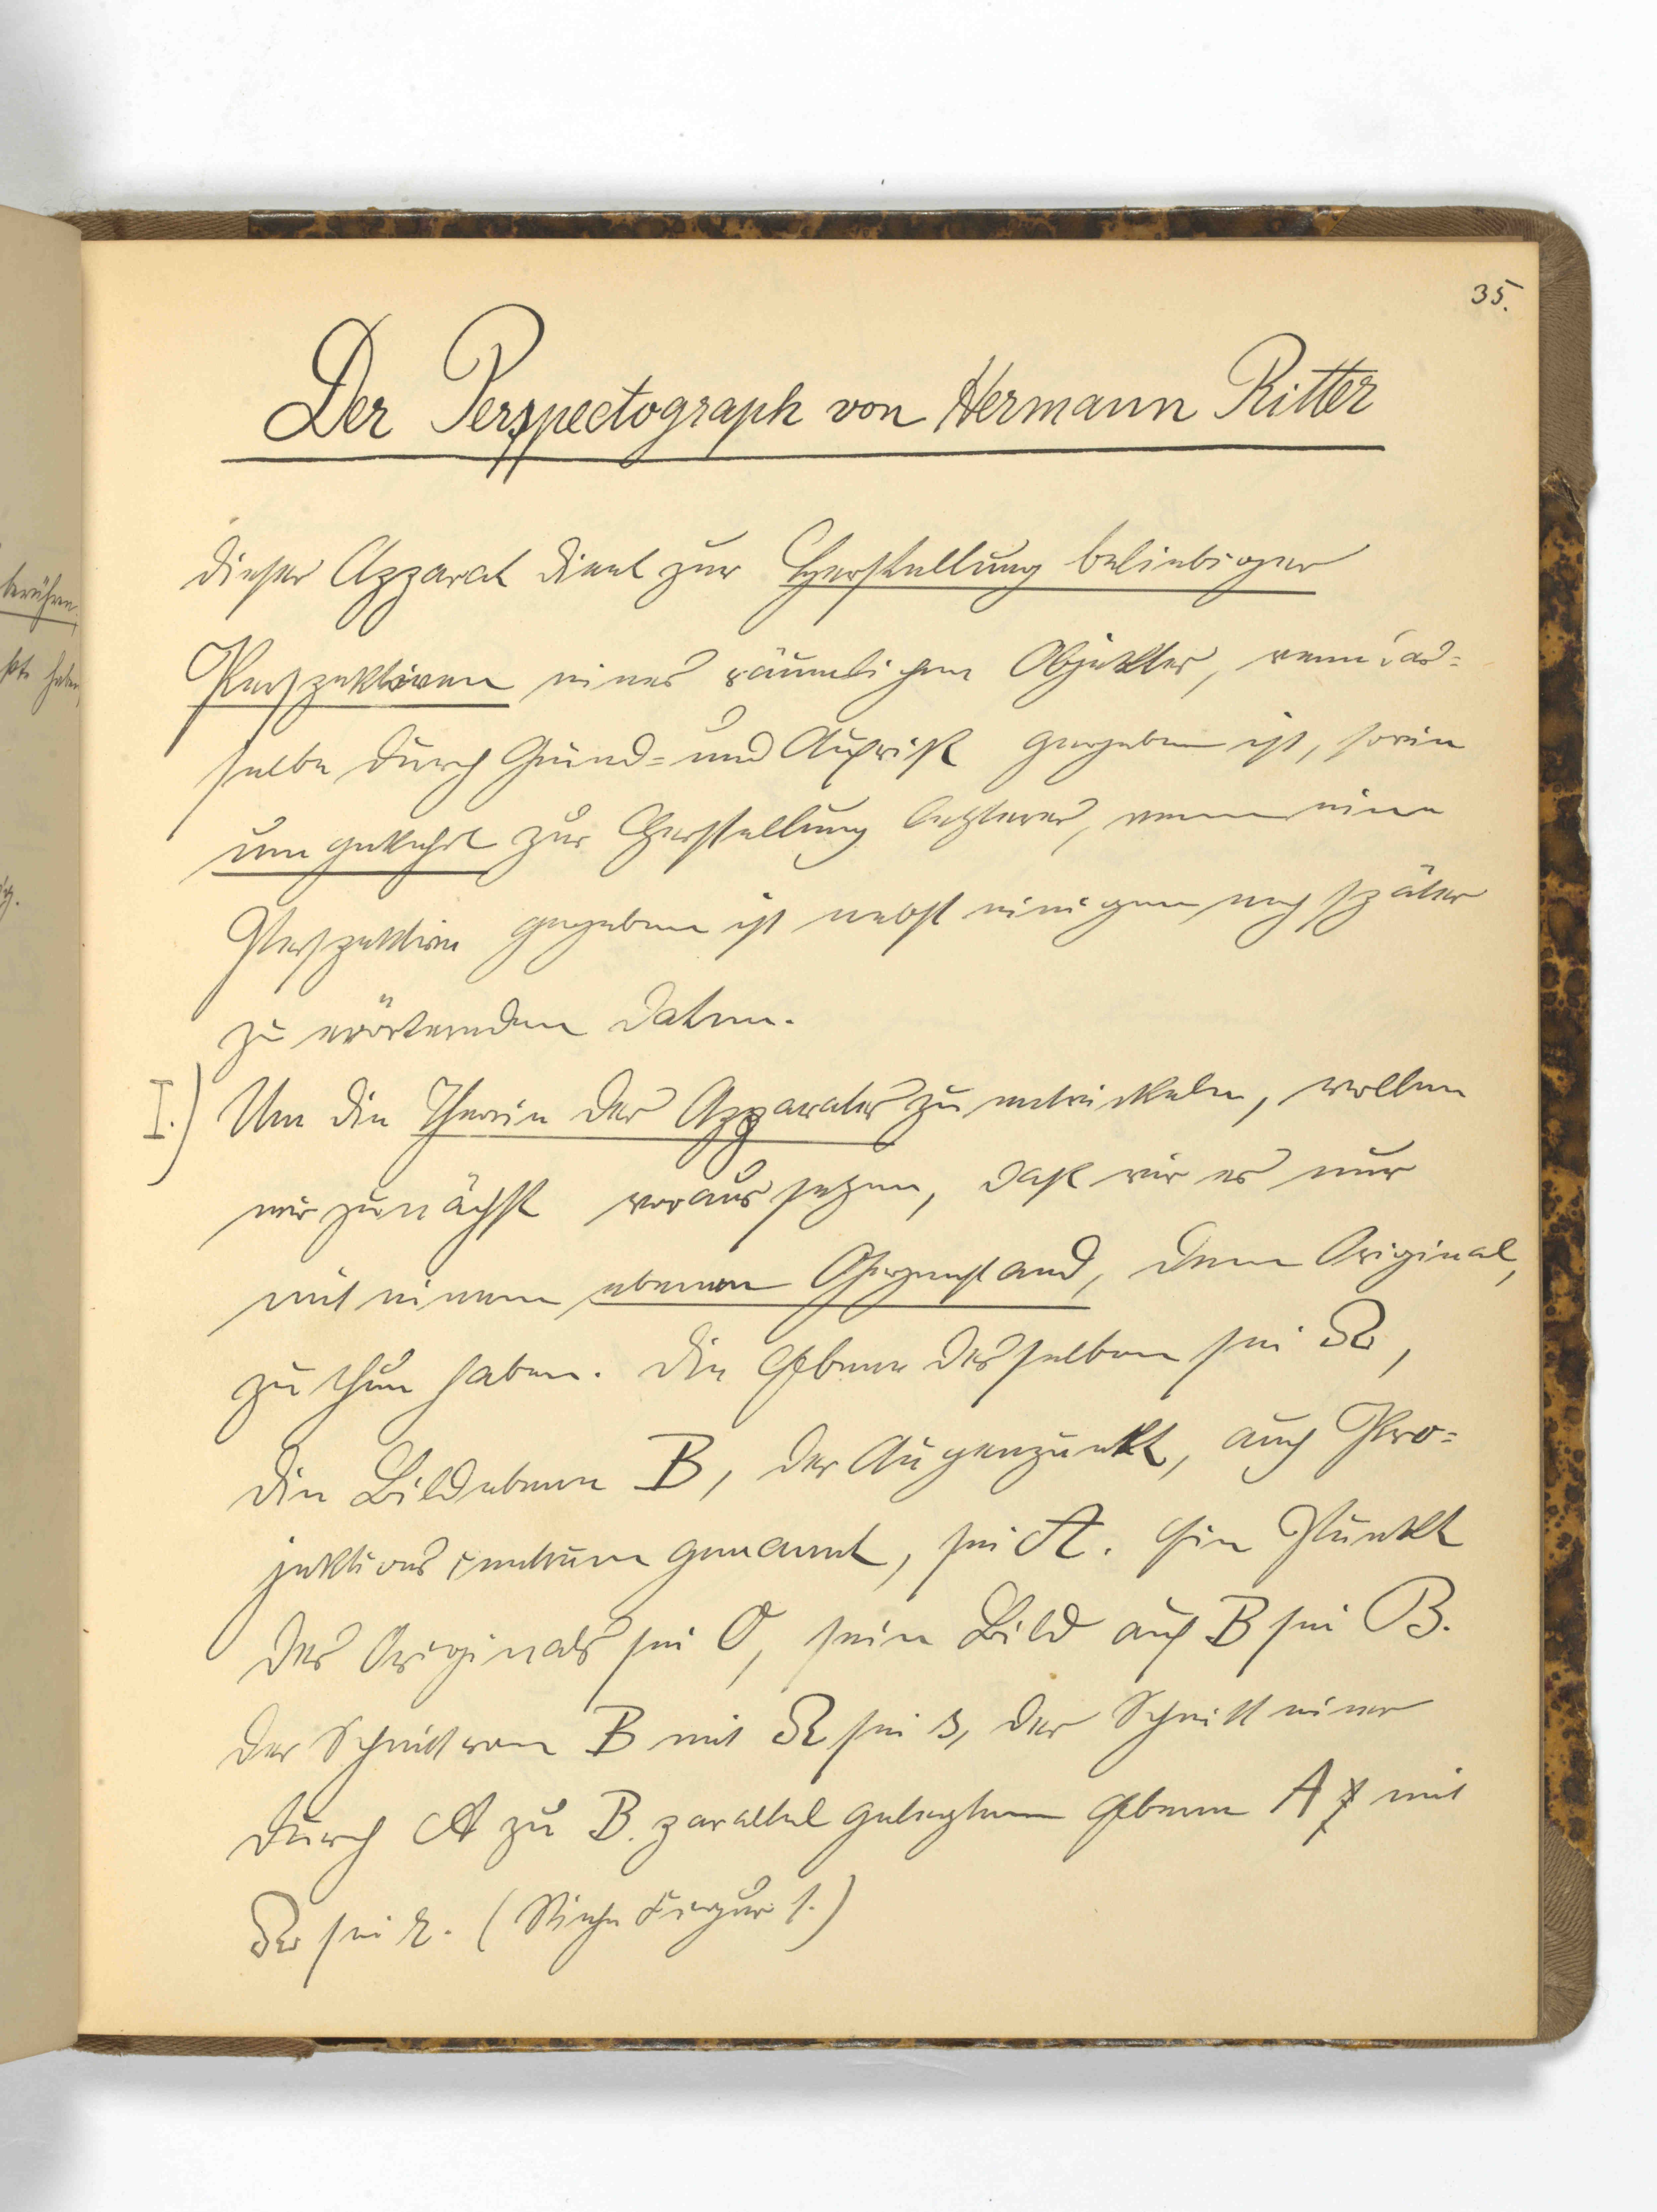 35.
Der Perspectograph von Hermann Ritter
Dieser Apparat dient zur Herstellung beliebiger
Perspektiven eines räumlichen Objektes, wenn das=
selbe durch Grund= und Aufriß gegeben ist, sowie
umgekehrt zur Herstellung letzterer, wenn eine
Perspektive gegeben ist nebst einigen noch später
zu erörternden Daten.
I.) Um die Theorie des Apparates zu entwickeln, wollen
wir zunächst voraussetzen, daß wir es nur
mit einem ebenen Gegenstand, dem Original,
zu thun haben. Die Ebene desselben sei
die Bildebene B, der Augenpunkt, auch Pro=
jektionscentrum genannt, sei A. Ein Punkt
des Originals sei O, sein Bild auf B sei B.
Der Schnitt von B mit sei s, der Schnitt einer
durch A zu B parallel gelegten Ebene A mit
sei r. (Siehe Figur 1.)
berühren.
haben,